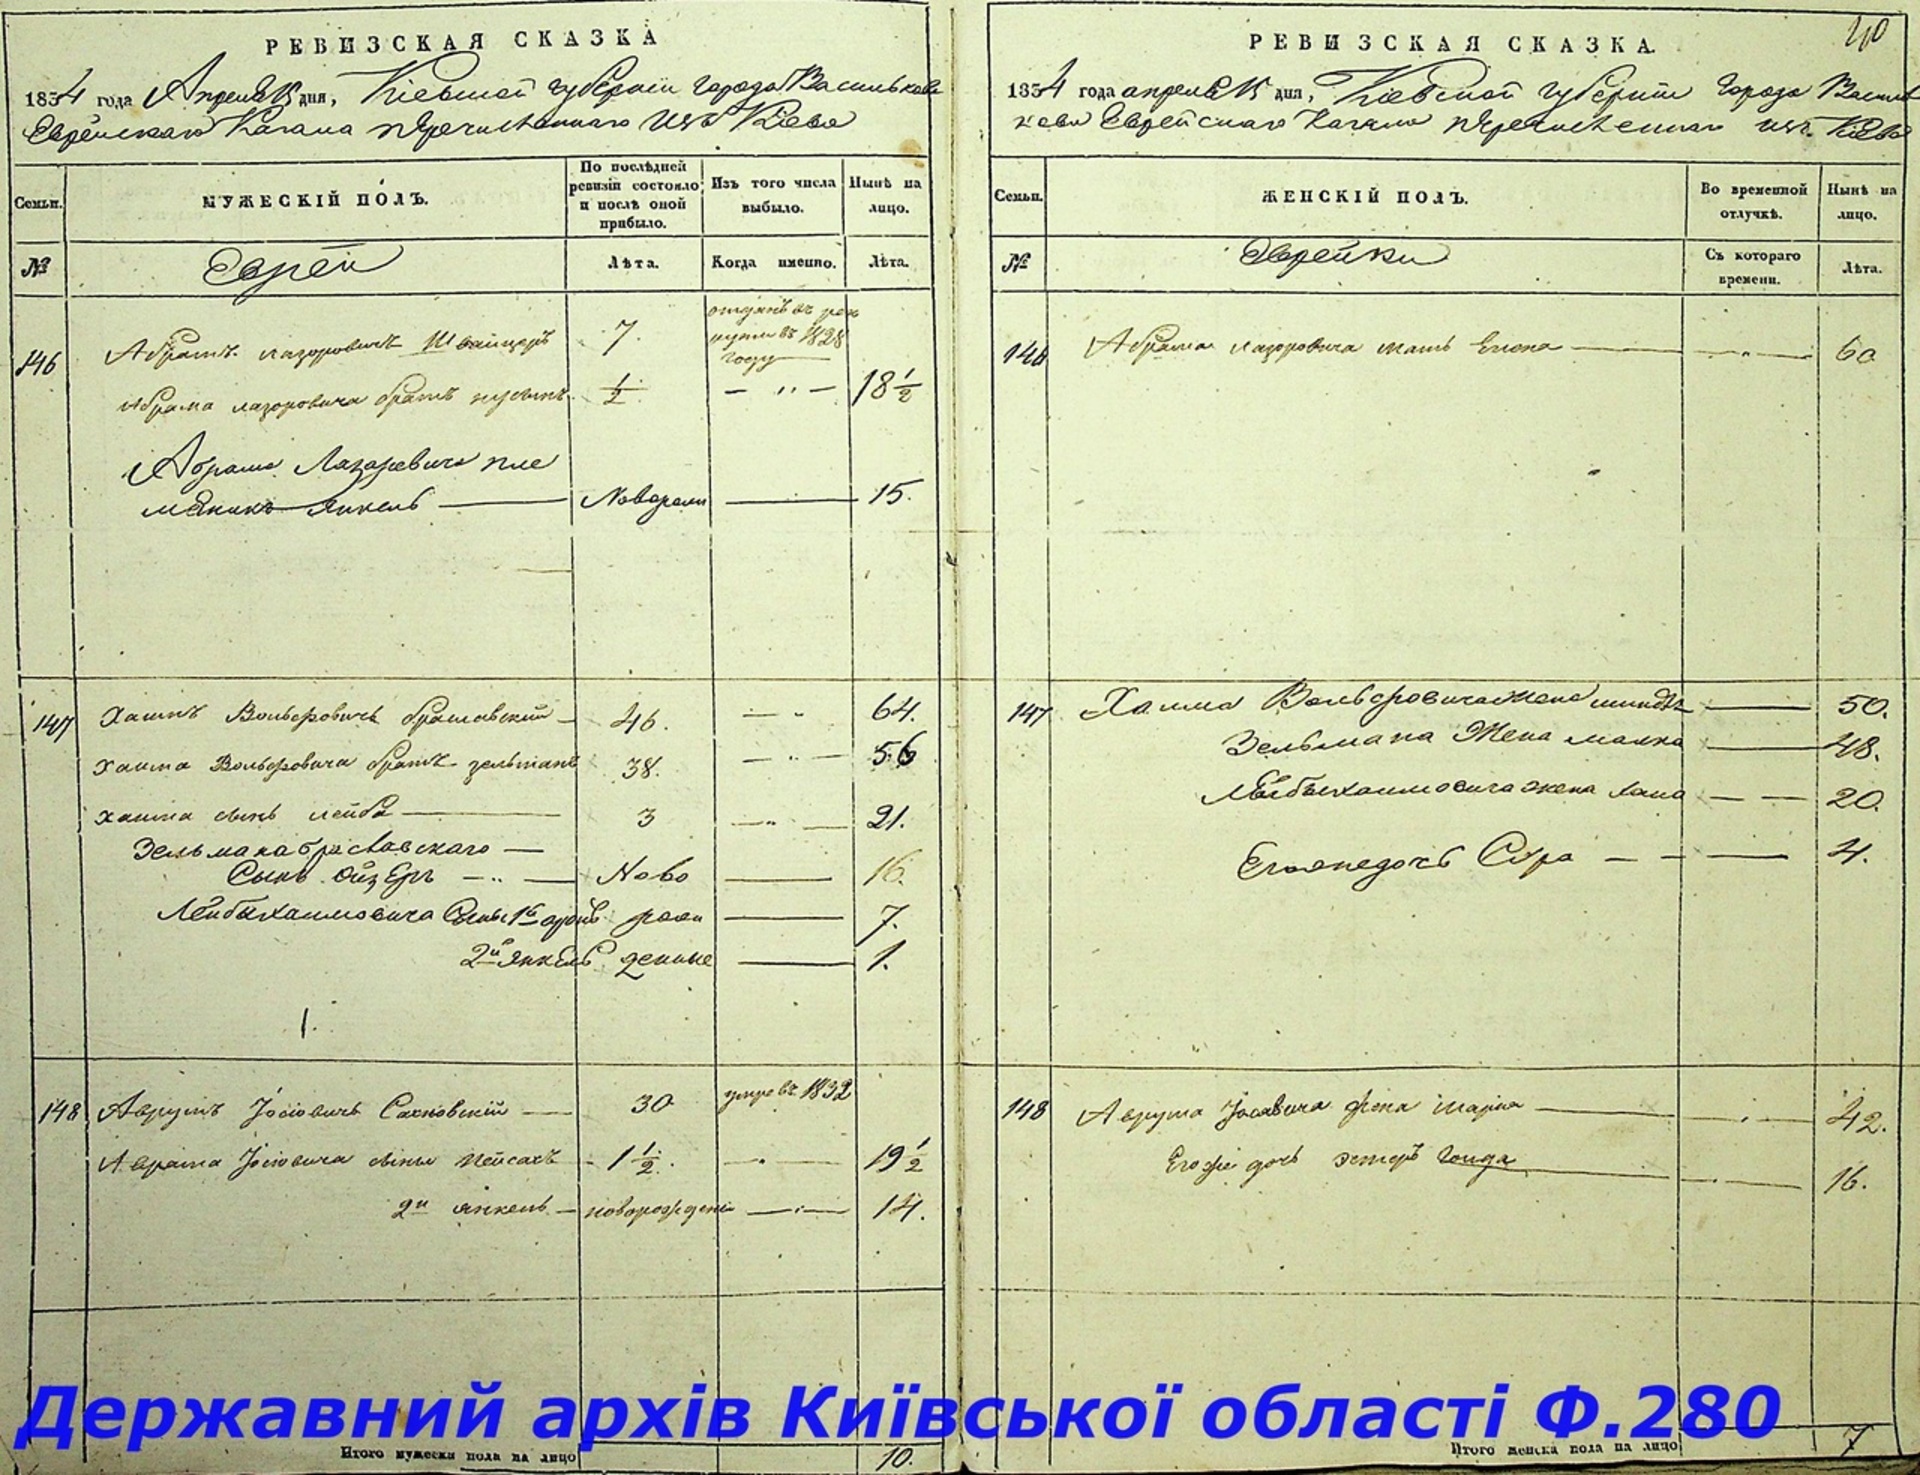 РЕВИЗСКАЯ СКАЗКА
1834 года Апреля 15 дня, Кіевской губерніи города Василькова
Еврейскаго Кагала перечисленнаго изъ Кіева
Семьи.
МУЖЕСКІЙ ПОЛЪ.
По послѣдней ревизіи состояло и послѣ оной прибыло.
Изъ того числа выбыло.
Нынѣ на лицо.
№
Евреи
Лѣта.
Когда именно.
Лѣта.
146 Абрамъ Лазоровичъ Швайцеръ 7. отданъ въ рекруты въ 1828 году
Абрама Лазоровича братъ 1/2 — " — 18 1/2
Абрама Лазаревича пле
мяникъ Янкель — Новорожд — 15.
147 Хаимъ Вольфовичъ Браславскій — 46. — " 64.
Хаима Вольфовича братъ Зельманъ 38. — " — 56
Хаима сынъ Лейба — 3 — " — 21.
Зельмана браславскаго —
Сынъ Ойзеръ — " — Ново — 16.
Лейбы Хаимовича Сыны 1й рож — 7.
2й Янкель денные — 1.
1.
148 Аврумъ Іосіовичъ Сахновскій — 30 умре въ 1832
Аврама Іосіовича сыны Пейсахъ - 1 1/2. — " — 19 1/2
2й Янкель — новорожденъ — " — 14.
Итого мужеска пола на лицо 10.
РЕВИЗСКАЯ СКАЗКА.
40
1834 года апреля 15 дня, Кіевской губерніи города Василь
кова Еврейскаго Кагала перечисленнаго изъ Кіева
Семьи.
ЖЕНСКІЙ ПОЛЪ.
Во временной отлучкѣ.
Нынѣ на лицо.
№
Еврейки
Съ котораго времени.
Лѣта.
146 Абрама Лазоровича мать Елена — " — 60
147 Хаима Вольфовича жена — 50.
Зельмана Жена малка — 48.
Лейбы Хаимовича жена Хана — — 20.
Его же дочь Сура — — — 4.
148 Аврума Іосіовича жена Марія — " — 42.
Его же дочь Эстеръ — " — 16.
Итого женска пола на лицо 7
Державний архів Київської області Ф.280